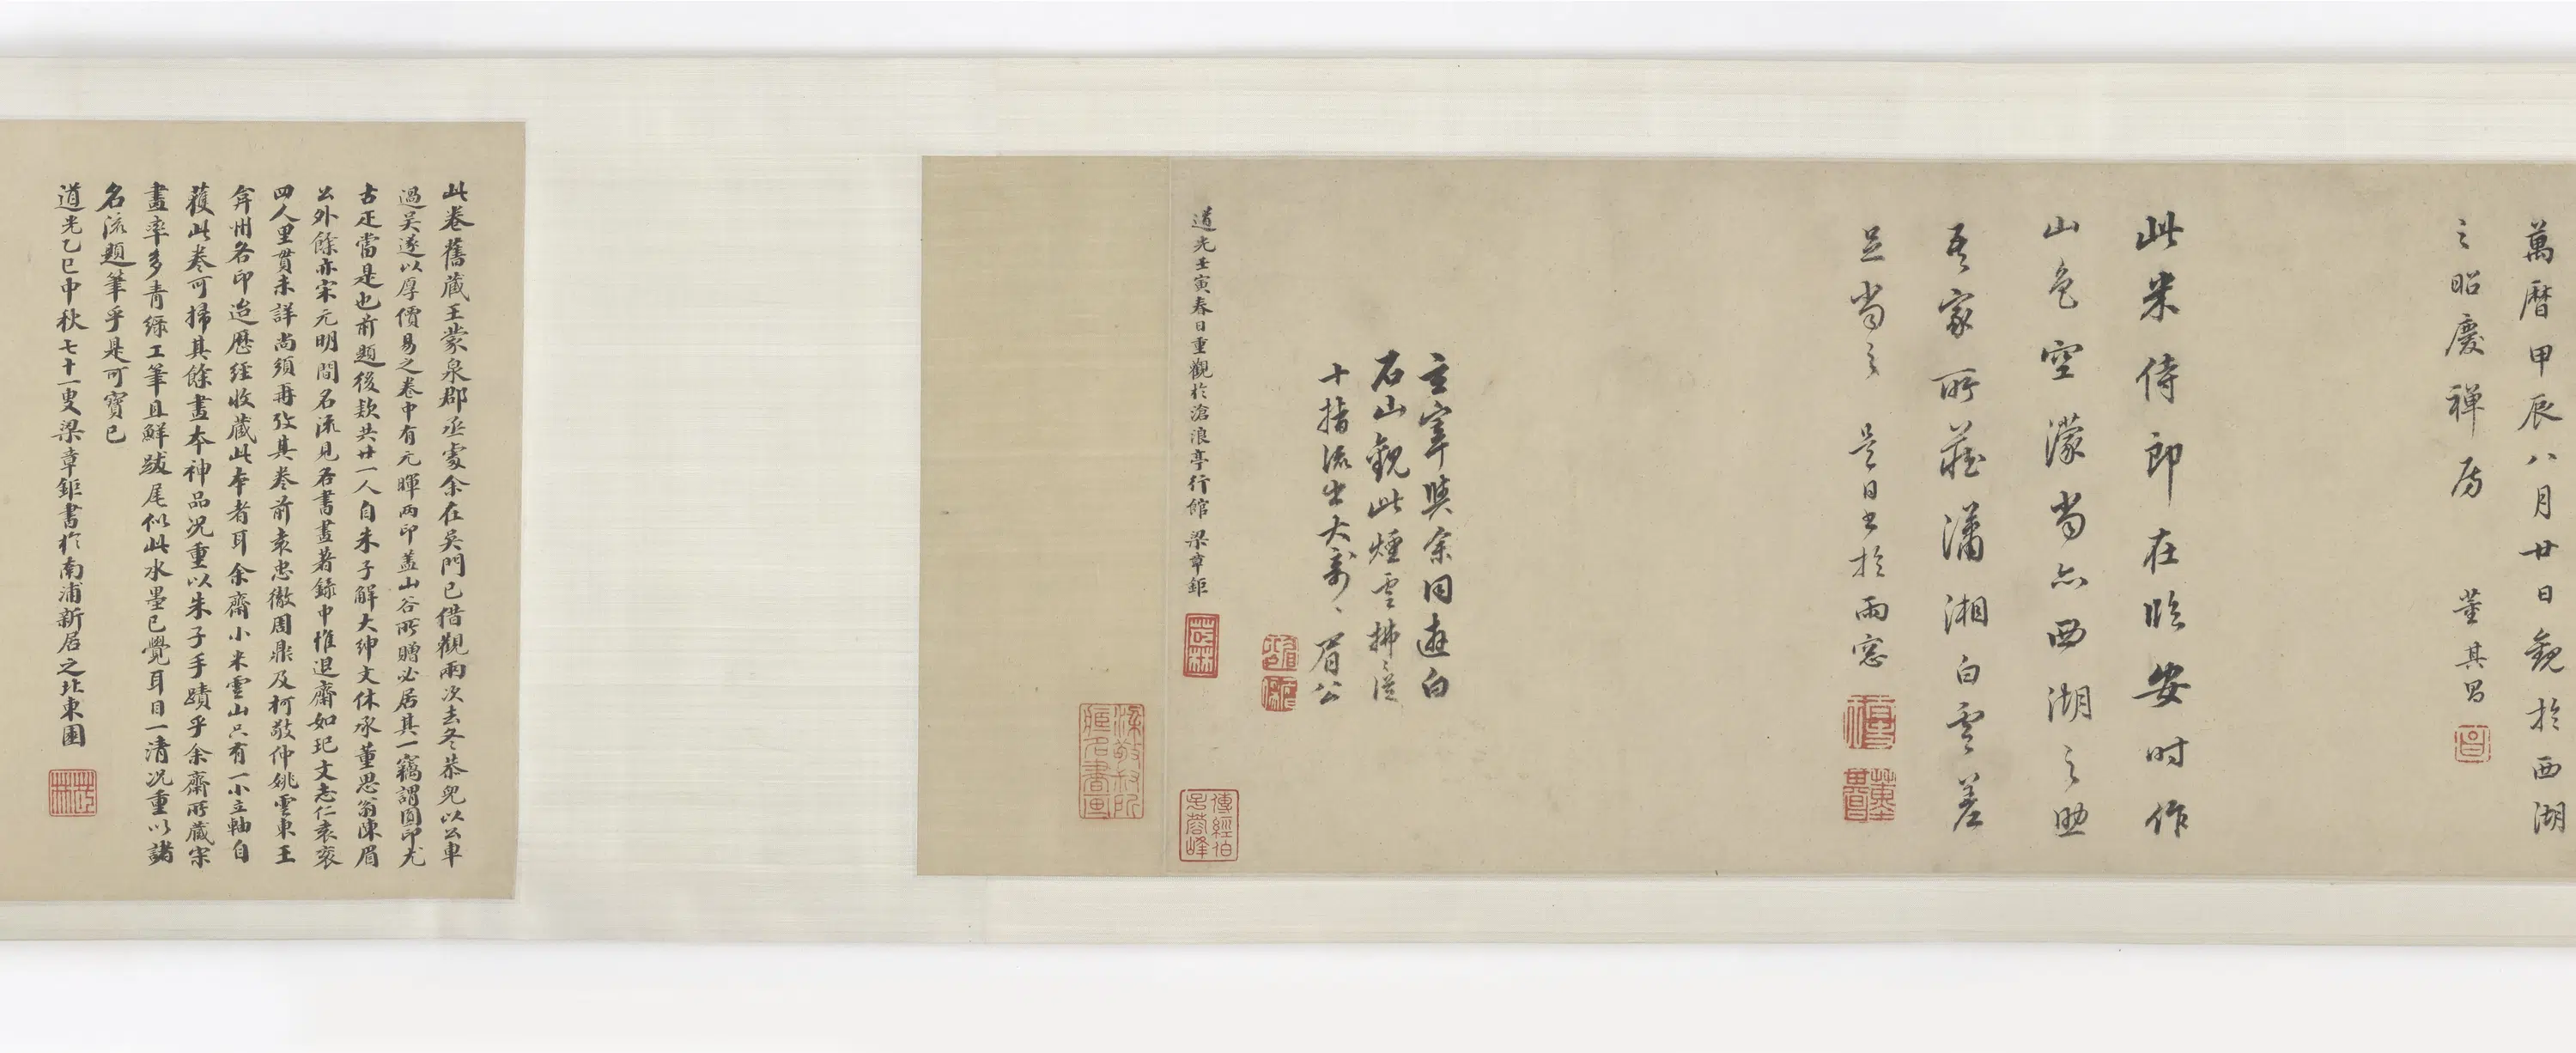 萬曆甲辰八月廿日觀於西湖
之昭慶禪房　董其昌
此米侍郎在臨安時作
山色空濛當亦西湖之助
吾家所藏瀟湘白雲差
足當之　是日書於雨窓
玄宰與余同遊白
石山觀此煙雲拂拂從
十指流出大奇大奇眉公
道光壬寅春日重觀於滄浪亭行館　梁章鉅
茝林
梁敬叔所
藏名書畫
傳經伯
名蓉峰
此卷舊藏王蒙泉郡丞處余在吳門已借觀兩次去冬恭兒以公車
過吳遂以厚價易之卷中有元暉兩印蓋山谷所贈必居其一竊謂圓印尤
古疋當是也前題後款共廿一人自朱子解大紳文休承董思翁陳眉
公外餘亦宋元明間名流見各書畫著錄中惟退齋如玘文志仁袁袠
四人里貫未詳尚須再攷其卷前袁忠徹周鼎及柯敬仲姚雲東王
弇州各印迨歷經收藏此本者耳余齋小米雲山只有一小立軸自
獲此卷可掃其餘畫本神品况重以朱子手蹟乎余齋所藏宋
畫率多青綠工筆且鮮跋尾似此水墨已覺耳目一清况重以諸
名流題筆乎是可寶已
道光乙巳中秋七十一叟梁章鉅書於南浦新居之北東園
茝林